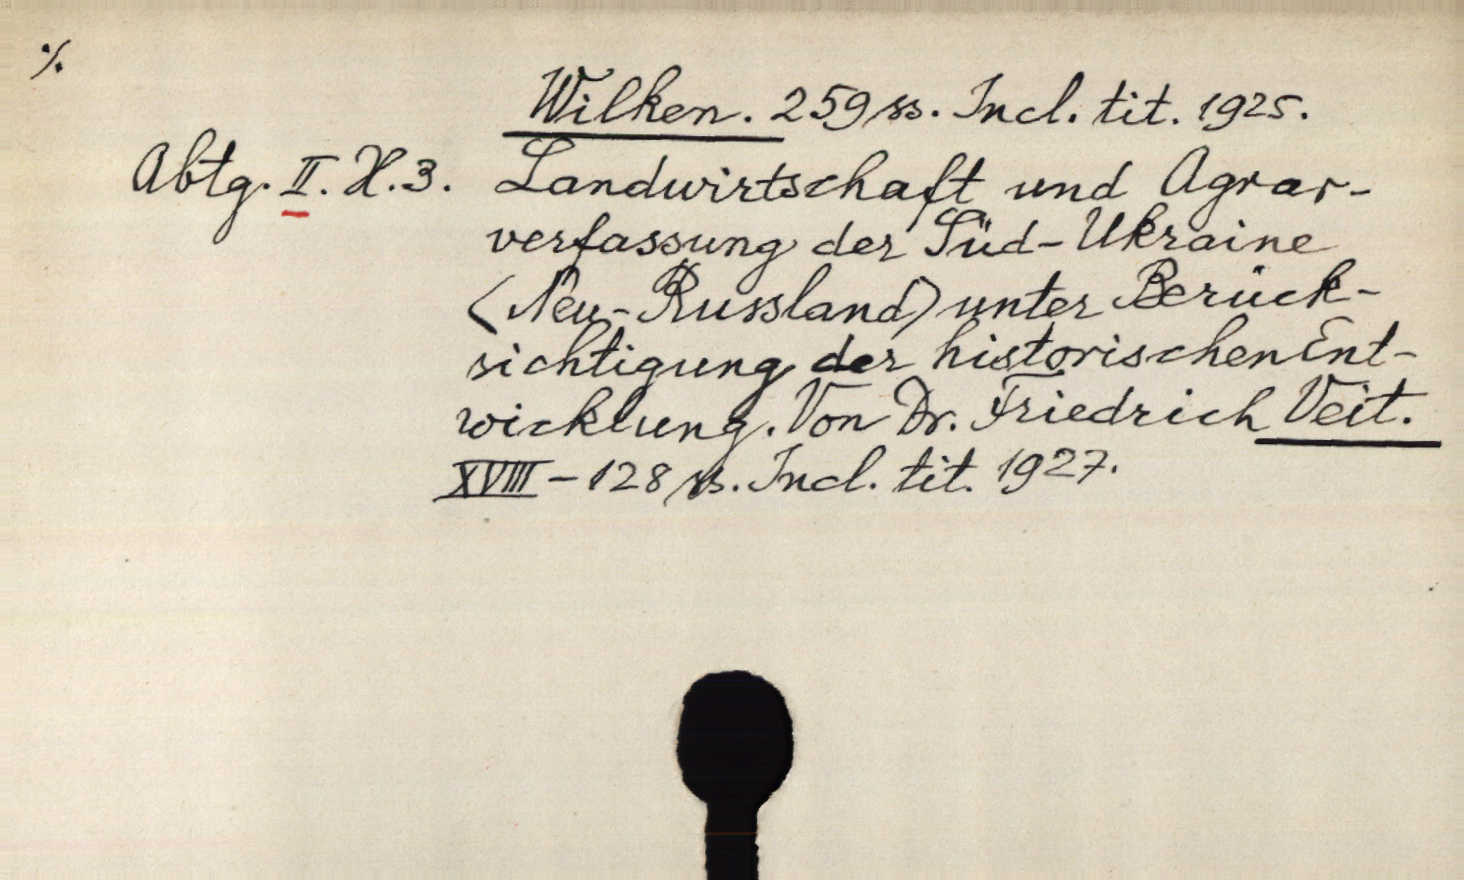 ·/.
Wilken. 259 ss. Incl. tit. 1925.
Abtg. II. H.3. Landwirtschaft und Agrar-
verfassung der Süd-Ukraine
(Neu-Russland) unter Berück-
sichtigung der historischen Ent-
wicklung. Von Dr. Friedrich Veit.
XVIII-128 ss. Incl. tit. 1927.